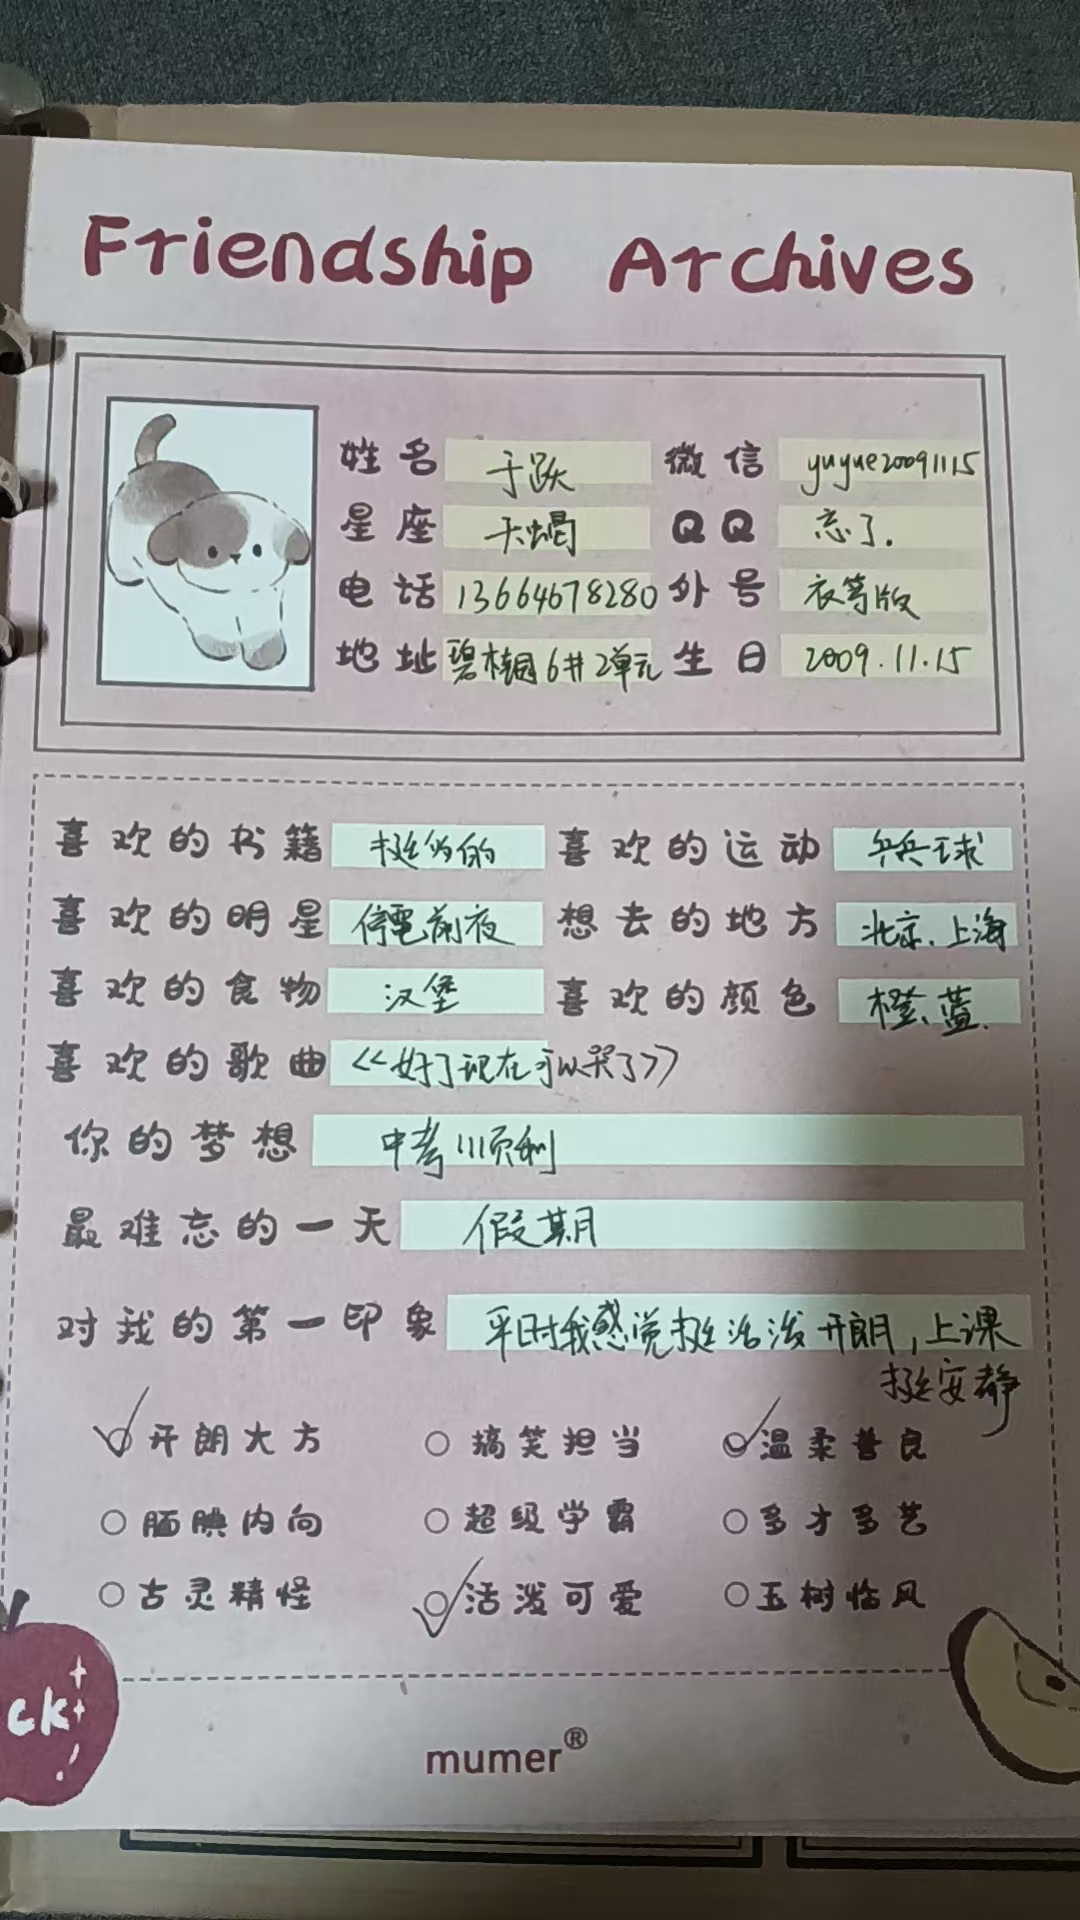 Friendship Archives
姓名 于跃 微信 yuyue20091115
星座 天蝎 QQ 忘了.
电话 13664678280 外号
地址 碧桂园6#2单元 生日 2009.11.15
喜欢的书籍 挺多的 喜欢的运动 乒乓球
喜欢的明星 停電前夜 想去的地方 北京、上海
喜欢的食物 汉堡 喜欢的颜色 橙、蓝.
喜欢的歌曲 <<好了现在可以哭了>>
你的梦想 中考顺利
最难忘的一天 假期
对我的第一印象 平时我感觉挺活泼开朗,上课
挺安静
开朗大方 搞笑担当 温柔善良
腼腆内向 超级学霸 多才多艺
古灵精怪 活泼可爱 玉树临风
ck
mumer®